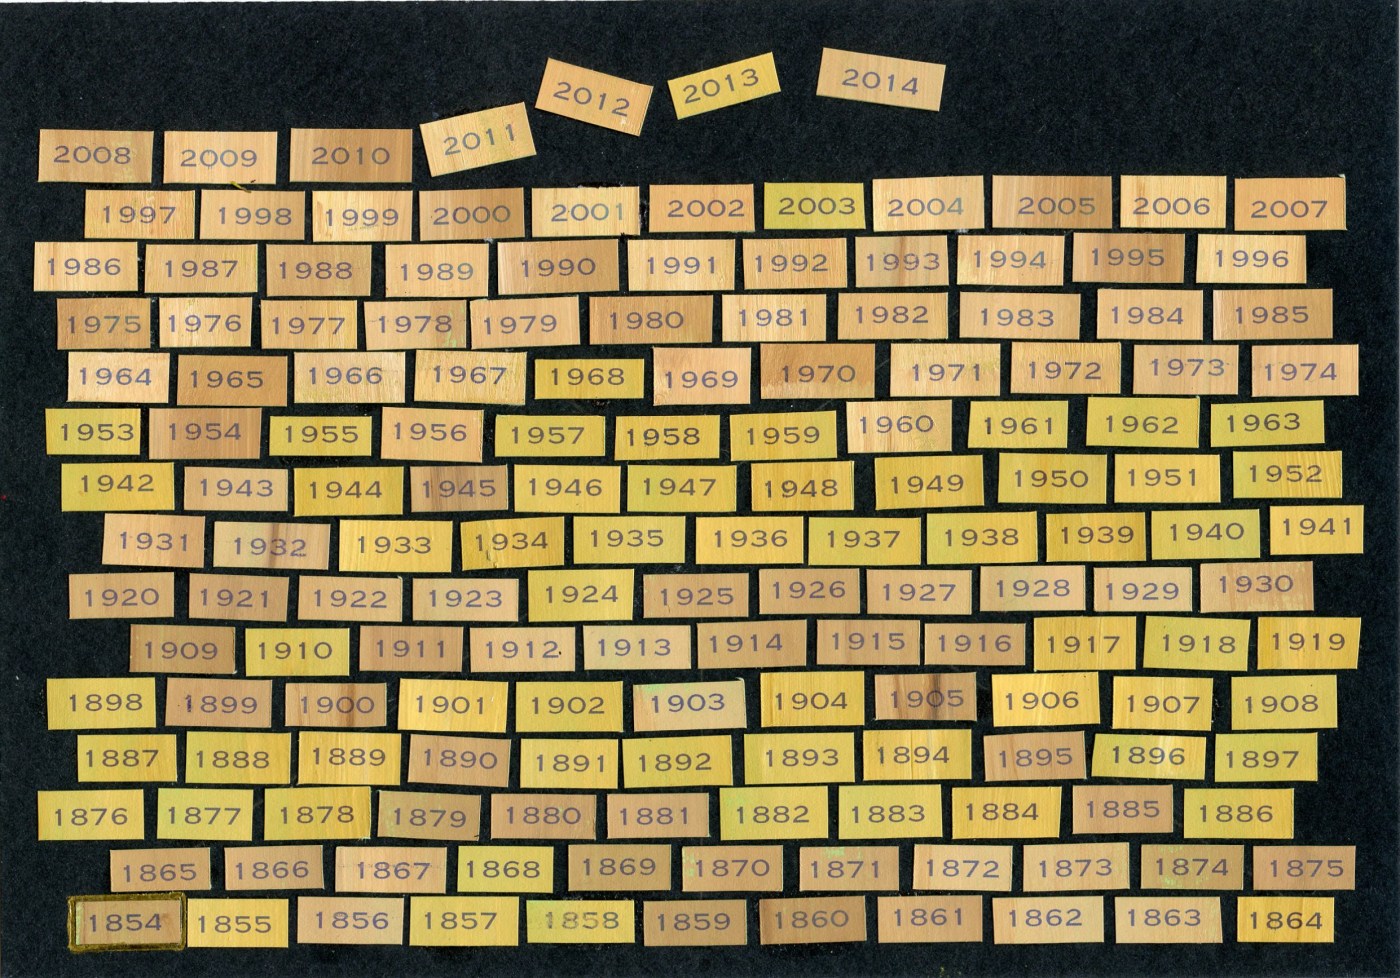 2012 2013 2014
2008 2009 2010 2011
1997 1998 1999 2000 2001 2002 2003 2004 2005 2006 2007
1986 1987 1988 1989 1990 1991 1992 1993 1994 1995 1996
1975 1976 1977 1978 1979 1980 1981 1982 1983 1984 1985
1964 1965 1966 1967 1968 1969 1970 1971 1972 1973 1974
1953 1954 1955 1956 1957 1958 1959 1960 1961 1962 1963
1942 1943 1944 1945 1946 1947 1948 1949 1950 1951 1952
1931 1932 1933 1934 1935 1936 1937 1938 1939 1940 1941
1920 1921 1922 1923 1924 1925 1926 1927 1928 1929 1930
1909 1910 1911 1912 1913 1914 1915 1916 1917 1918 1919
1898 1899 1900 1901 1902 1903 1904 1905 1906 1907 1908
1887 1888 1889 1890 1891 1892 1893 1894 1895 1896 1897
1876 1877 1878 1879 1880 1881 1882 1883 1884 1885 1886
1865 1866 1867 1868 1869 1870 1871 1872 1873 1874 1875
1854 1855 1856 1857 1858 1859 1860 1861 1862 1863 1864